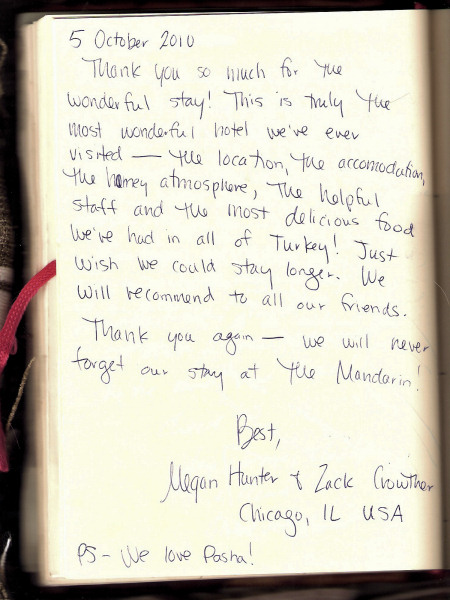 5 October 2010
Thank you so much for the
wonderful stay! This is truly the
most wonderful hotel we've ever
visited — the location, the accomodation,
the homey atmosphere, the helpful
staff and the most delicious food
we've had in all of Turkey! Just
wish we could stay longer. We
will recommend to all our friends.
Thank you again — we will never
forget our stay at the Mandarin!
Best,
Megan Hunter & Zack Crowther
Chicago, IL USA
PS - We love Pasha!